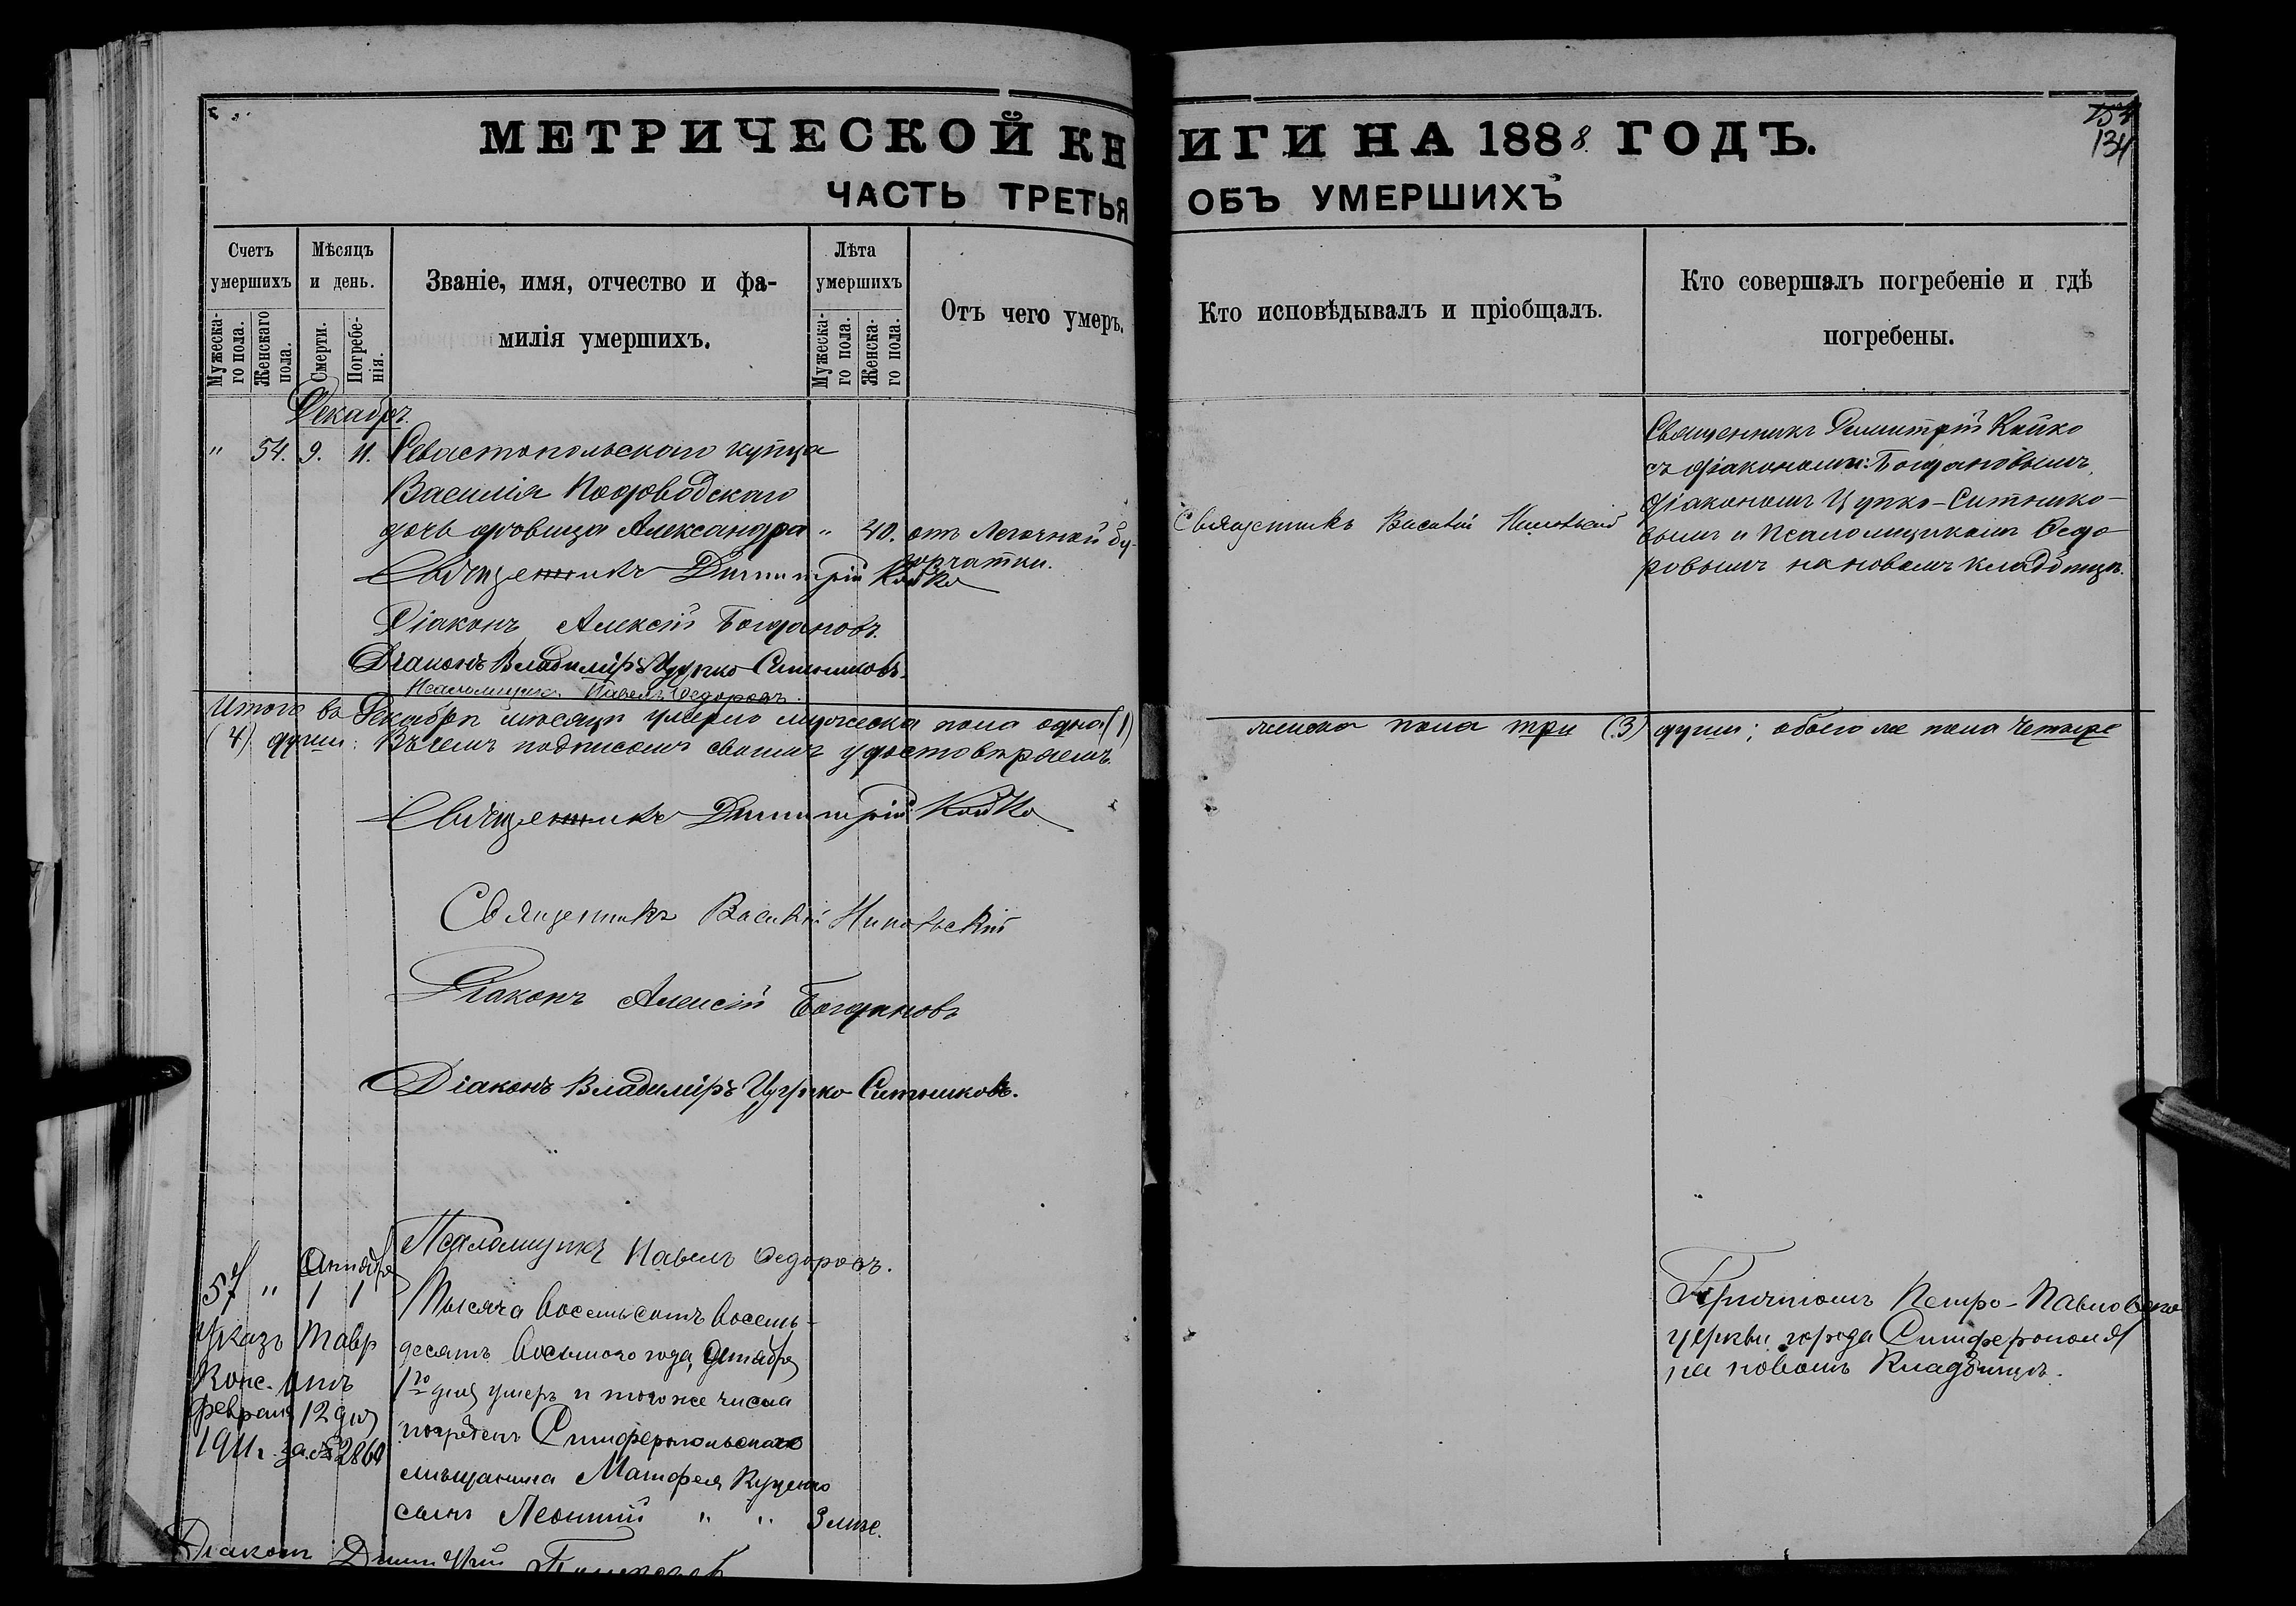 МЕТРИЧЕСКОЙ КНИГИ НА 1888 ГОДЪ.
134
ЧАСТЬ ТРЕТЬЯ ОБЪ УМЕРШИХЪ
Счетъ умершихъ
Мужеска-го пола.
Женскаго пола.
Мѣсяцъ и день.
Смерти.
Погребе-нія.
Званіе, имя, отчество и фа-
милія умершихъ.
Лѣта умершихъ
Мужеска-го пола.
Женска-го пола.
Отъ чего умеръ.
Кто исповѣдывалъ и пріобщалъ.
Кто совершалъ погребеніе и гдѣ
погребены.
Декабрь.
" 54. 9. 11. Севастопольскаго купца
Василія
дочь вдовица Александра " 40. отъ Легочной бу-
горчатки.
Священникъ Василій Никольскій
Священникъ Димитрій Койко
съ діаконами: Богдановымъ,
діакономъ Цупко-Ситнико-
вымъ и Псаломщикомъ Ѳедо-
ровымъ на новомъ кладбищѣ.
Священникъ Димитрій Койко
Діаконъ Алексій Богдановъ.
Діаконъ Владиміръ Цупко-Ситниковъ.
Псаломщикъ Павелъ Ѳедоровъ.
Итого въ Декабрѣ мѣсяцѣ умерло мужеска пола одна (1) женска пола три (3) души; обоего же пола четыре
(4) души: Въ чемъ подписомъ своимъ удостовѣряемъ.
Священникъ Димитрій Койко
Священникъ Василій Никольскій
Діаконъ Алексій Богдановъ
Діаконъ Владиміръ Цупко-Ситниковъ.
Псаломщикъ Павелъ Ѳедоровъ.
57 " Октября 1 1
Указъ Тавр
Конс. отъ
февраля 12 дня
1911г. за № 2860
Тысяча восемьсотъ восемь-
десятъ восьмого года, Октября
1го дня умеръ и того же числа
погребенъ Симферопольскаго
мѣщанина Матфея Куценко
сынъ Леонтій " " 3 мѣс.
Причтомъ Петро-Павловской
церкви города Симферополя
на новомъ Кладбищѣ.
Діаконъ Димитрій